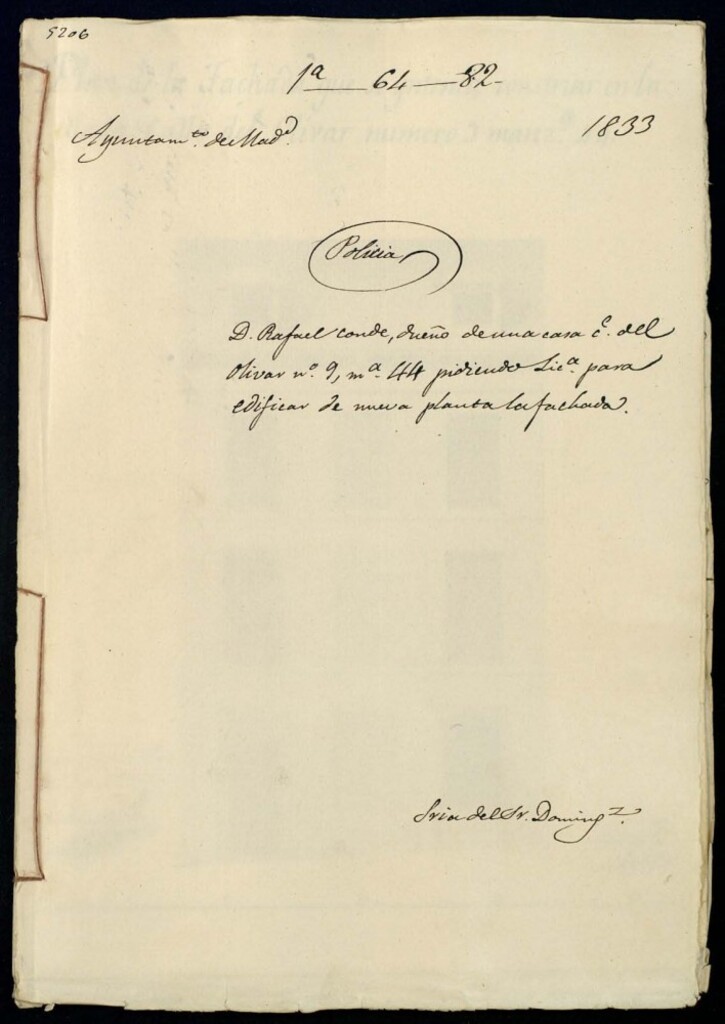 5206
1ª 64 82
Ayuntam.to de Mad.d
1833
Policia
D. Rafael Conde, dueño de una casa c.e del
Olivar n.o 9, m.a 44 pidiendo Lic.a para
edificar de nueva planta la fachada.
Sria del Sr. Doming.z